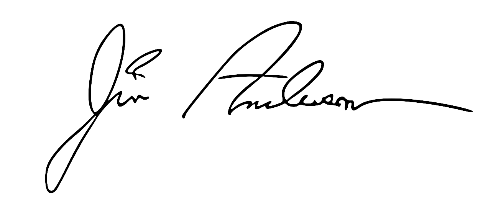 Jim Anderson